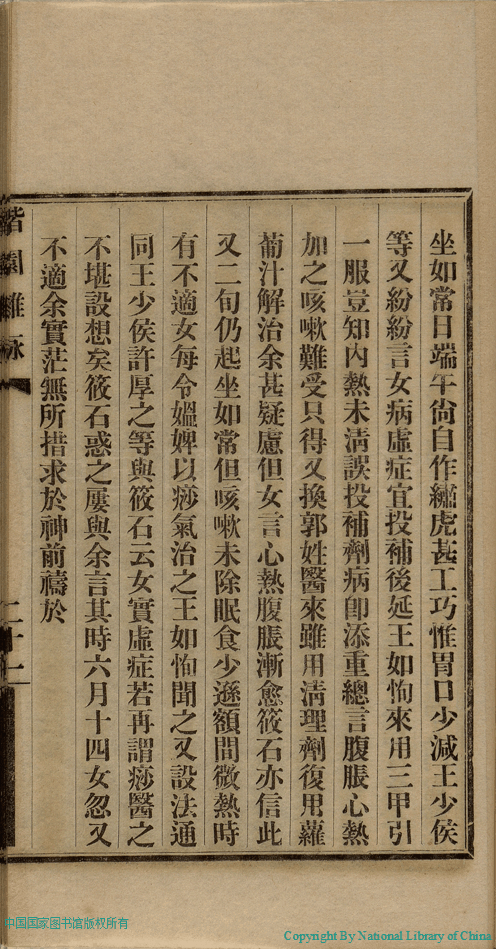 坐如常日端午尙自作繡虎甚工巧惟胃口少減王少侯
等又紛紛言女病虛症宜投補後延王如恂來用三甲引
一服豈知內熱未淸誤投補劑病卽添重總言腹脹心熱
加之咳嗽難受只得又換郭姓醫來雖用淸理劑復用蘿
蔔汁解治余甚疑慮但女言心熱腹脹漸愈筱石亦信此
又二旬仍起坐如常但咳嗽未除眠食少遜額間微熱時
有不適女每令媼婢以痧氣治之王如恂聞之又設法通
同王少侯許厚之等與筱石云女實虛症若再謂痧醫之
不堪設想矣筱石惑之屢與余言其時六月十四女忽又
不適余實茫無所措求於神前禱於
二十一
中国国家图书馆版权所有
Copyright By National Library of China